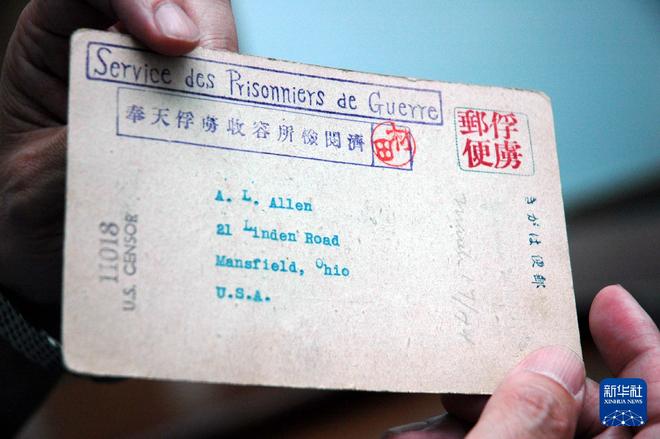 Service des Prisonniers de Guerre
奉天俘虜收容所檢閲濟
村田
俘虜
郵便
A. L. Allen
21 Linden Road
Mansfield, Ohio
U.S.A.
11018
U.S. CENSOR
きがは便郵
新华社
XINHUA NEWS